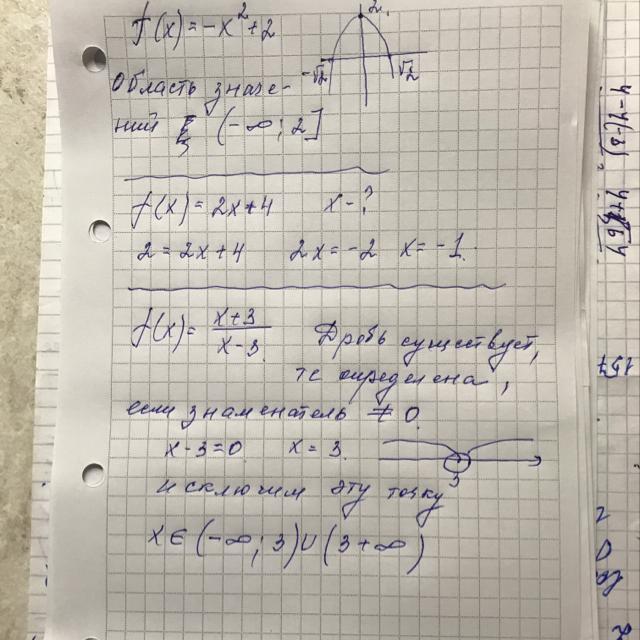 f(x) = -x² + 2
2
-√2 √2
Область значе-
ний (-∞; 2]
f(x) = 2x+4 x - ?
2 = 2x+4 2x = -2 x = -1.
f(x) = \frac{x+3}{x-3} Дробь существует,
те определена,
если знаменатель ≠ 0.
x-3=0 x = 3.
3
исключим эту точку
x ∈ (-∞; 3) ∪ (3 +∞)
157
2
0